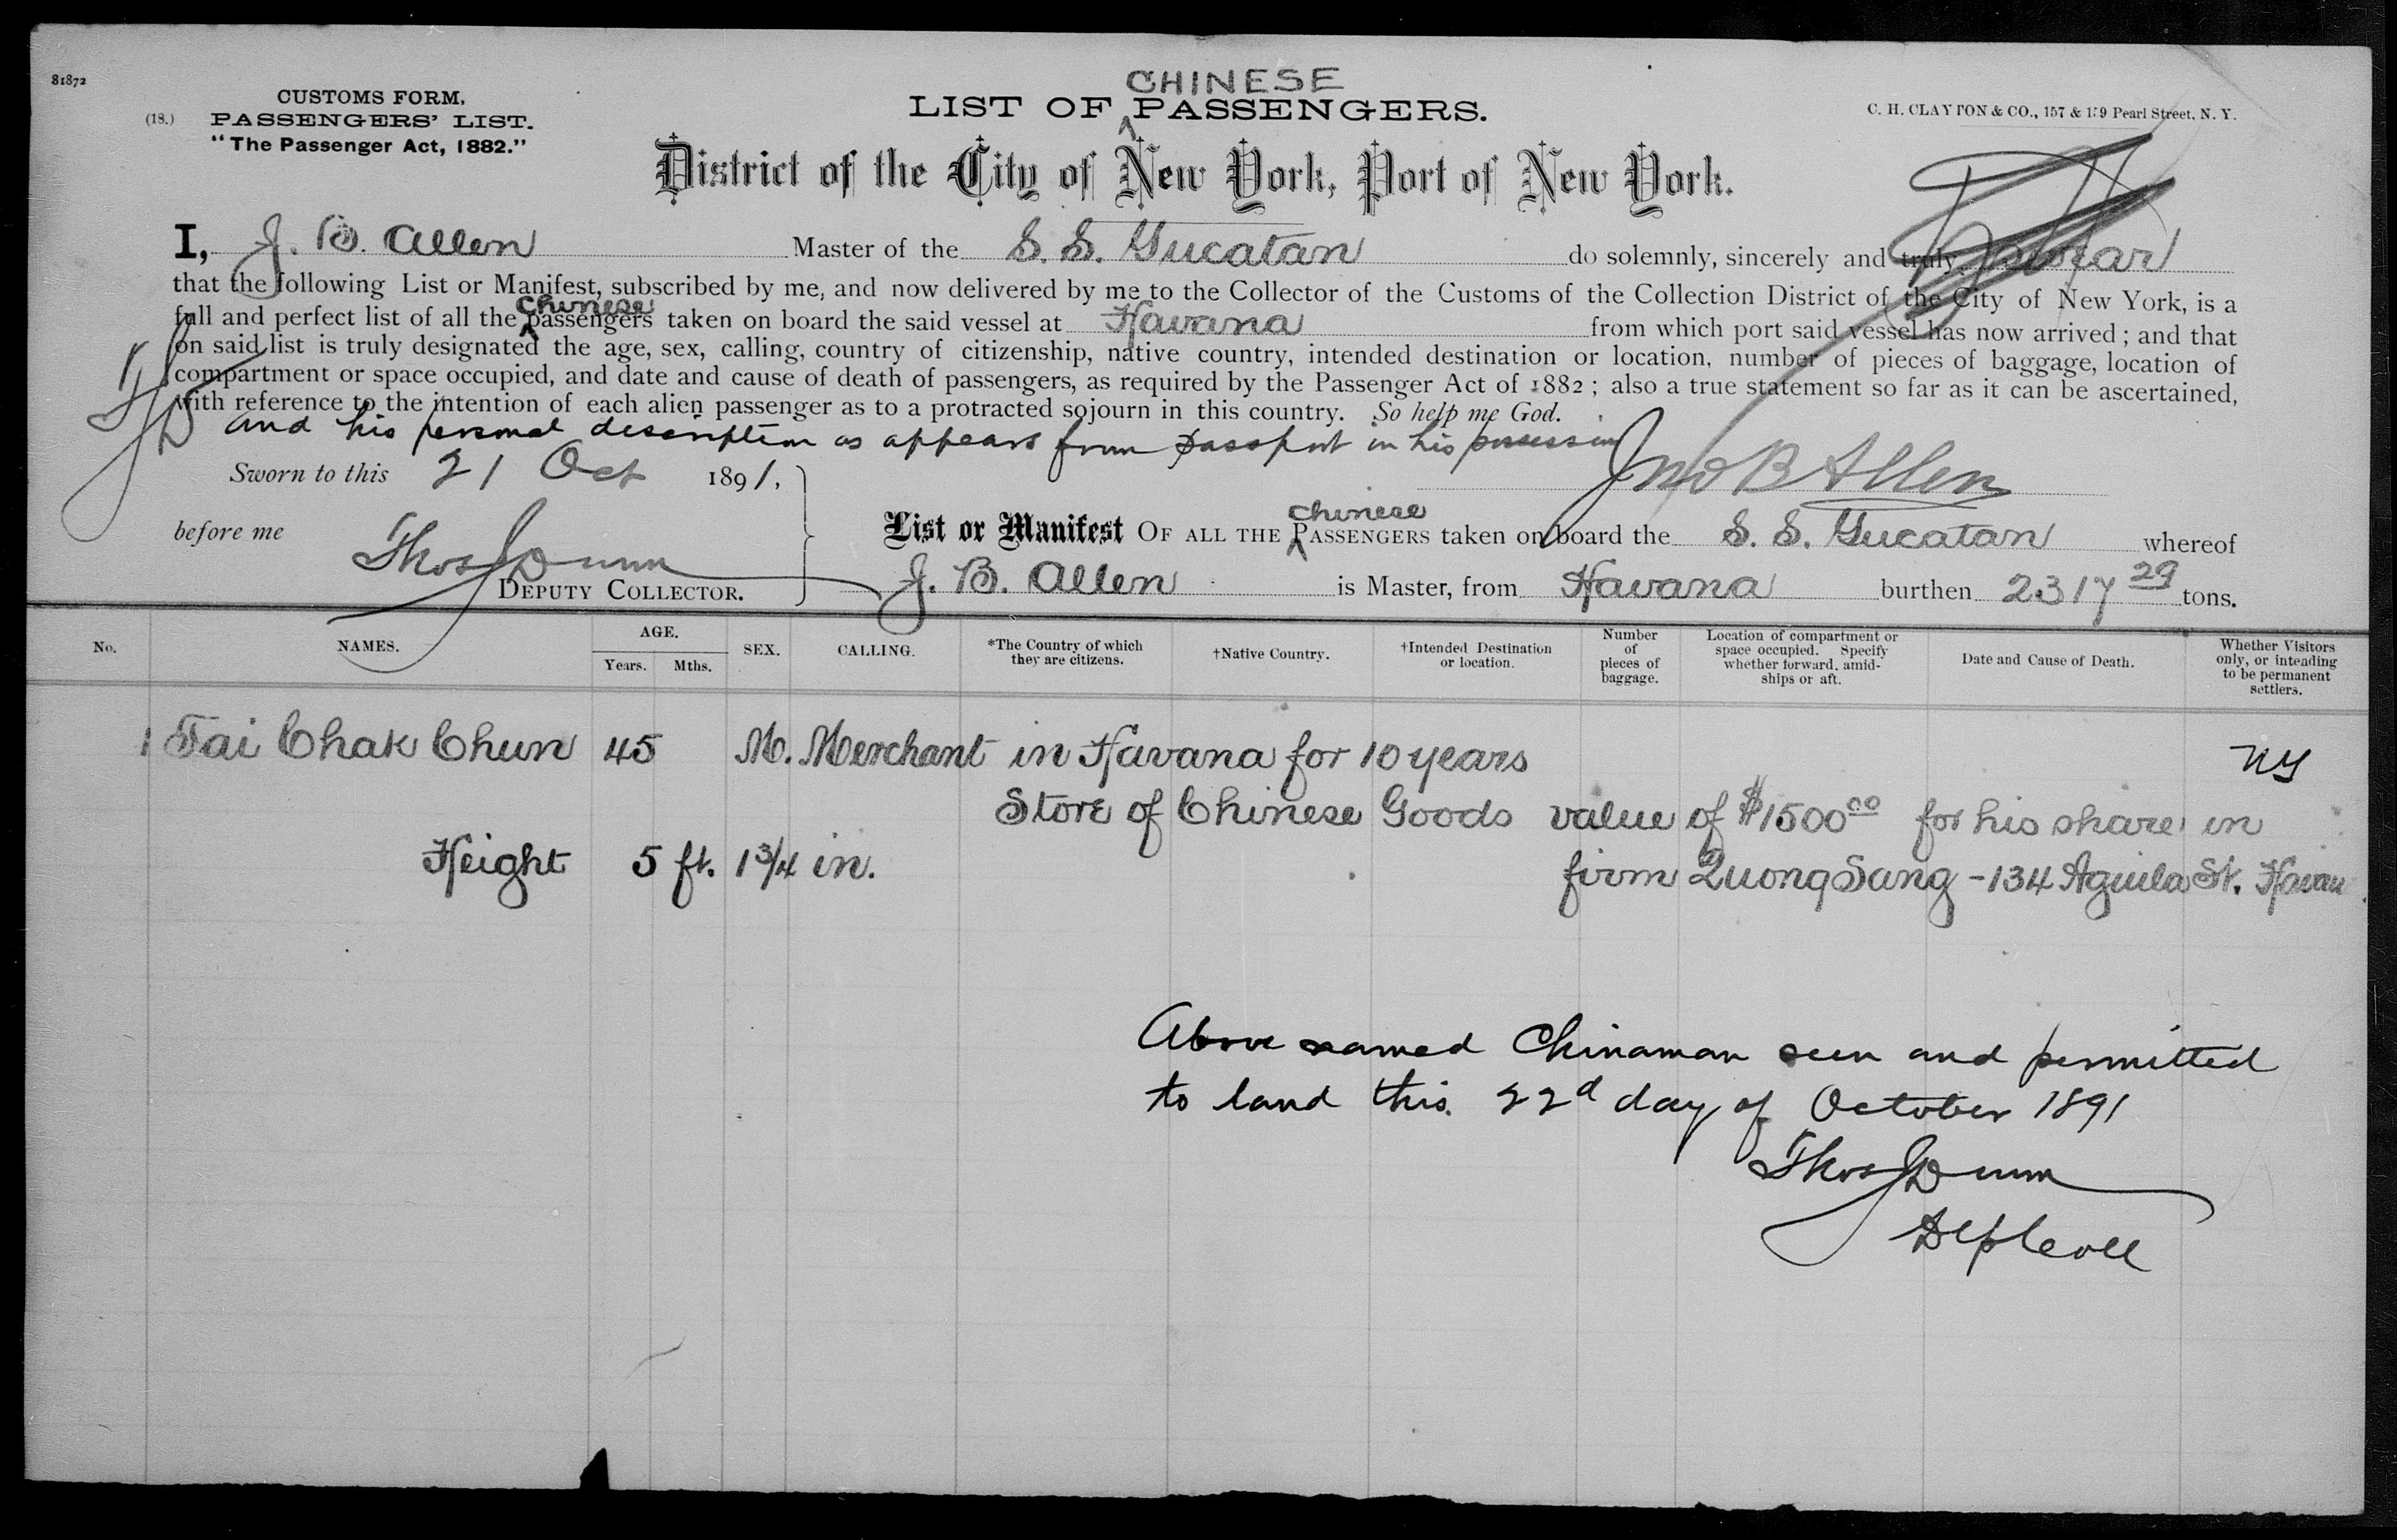 81872
CUSTOMS FORM.
(18.) PASSENGERS' LIST.
"The Passenger Act, 1882."
CHINESE
LIST OF PASSENGERS.
C. H. CLAYTON & CO., 157 & 159 Pearl Street, N. Y.
District of the City of New York, Port of New York.
I, J. B. Allen Master of the S. S. Yucatan do solemnly, sincerely and truly swear
that the following List or Manifest, subscribed by me, and now delivered by me to the Collector of the Customs of the Collection District of the City of New York, is a
full and perfect list of all the Chinese passengers taken on board the said vessel at Havana from which port said vessel has now arrived; and that
on said list is truly designated the age, sex, calling, country of citizenship, native country, intended destination or location, number of pieces of baggage, location of
compartment or space occupied, and date and cause of death of passengers, as required by the Passenger Act of 1882; also a true statement so far as it can be ascertained,
with reference to the intention of each alien passenger as to a protracted sojourn in this country. So help me God.
TJD and his personal description as appears from passport in his possession
Sworn to this 21 Oct 1891,
Jno B Allen
before me
Thos J Dunn
DEPUTY COLLECTOR.
List or Manifest OF ALL THE Chinese PASSENGERS taken on board the S. S. Yucatan whereof
J. B. Allen is Master, from Havana burthen 2317 29 tons.
No. NAMES. AGE. Years. Mths. SEX. CALLING. *The Country of which they are citizens. †Native Country. †Intended Destination or location. Number of pieces of baggage. Location of compartment or space occupied. Specify whether forward, amidships or aft. Date and Cause of Death. Whether Visitors only, or intending to be permanent settlers.
1 Tai Chak Chun 45 M. Merchant in Havana for 10 years NY
Store of Chinese Goods value of $1500 00 for his share in
Height 5 ft. 1 3/4 in. firm Quong Sang - 134 Aguila St. Havan
Above named Chinaman seen and permitted
to land this 22d day of October 1891
Thos J Dunn
Dep Coll